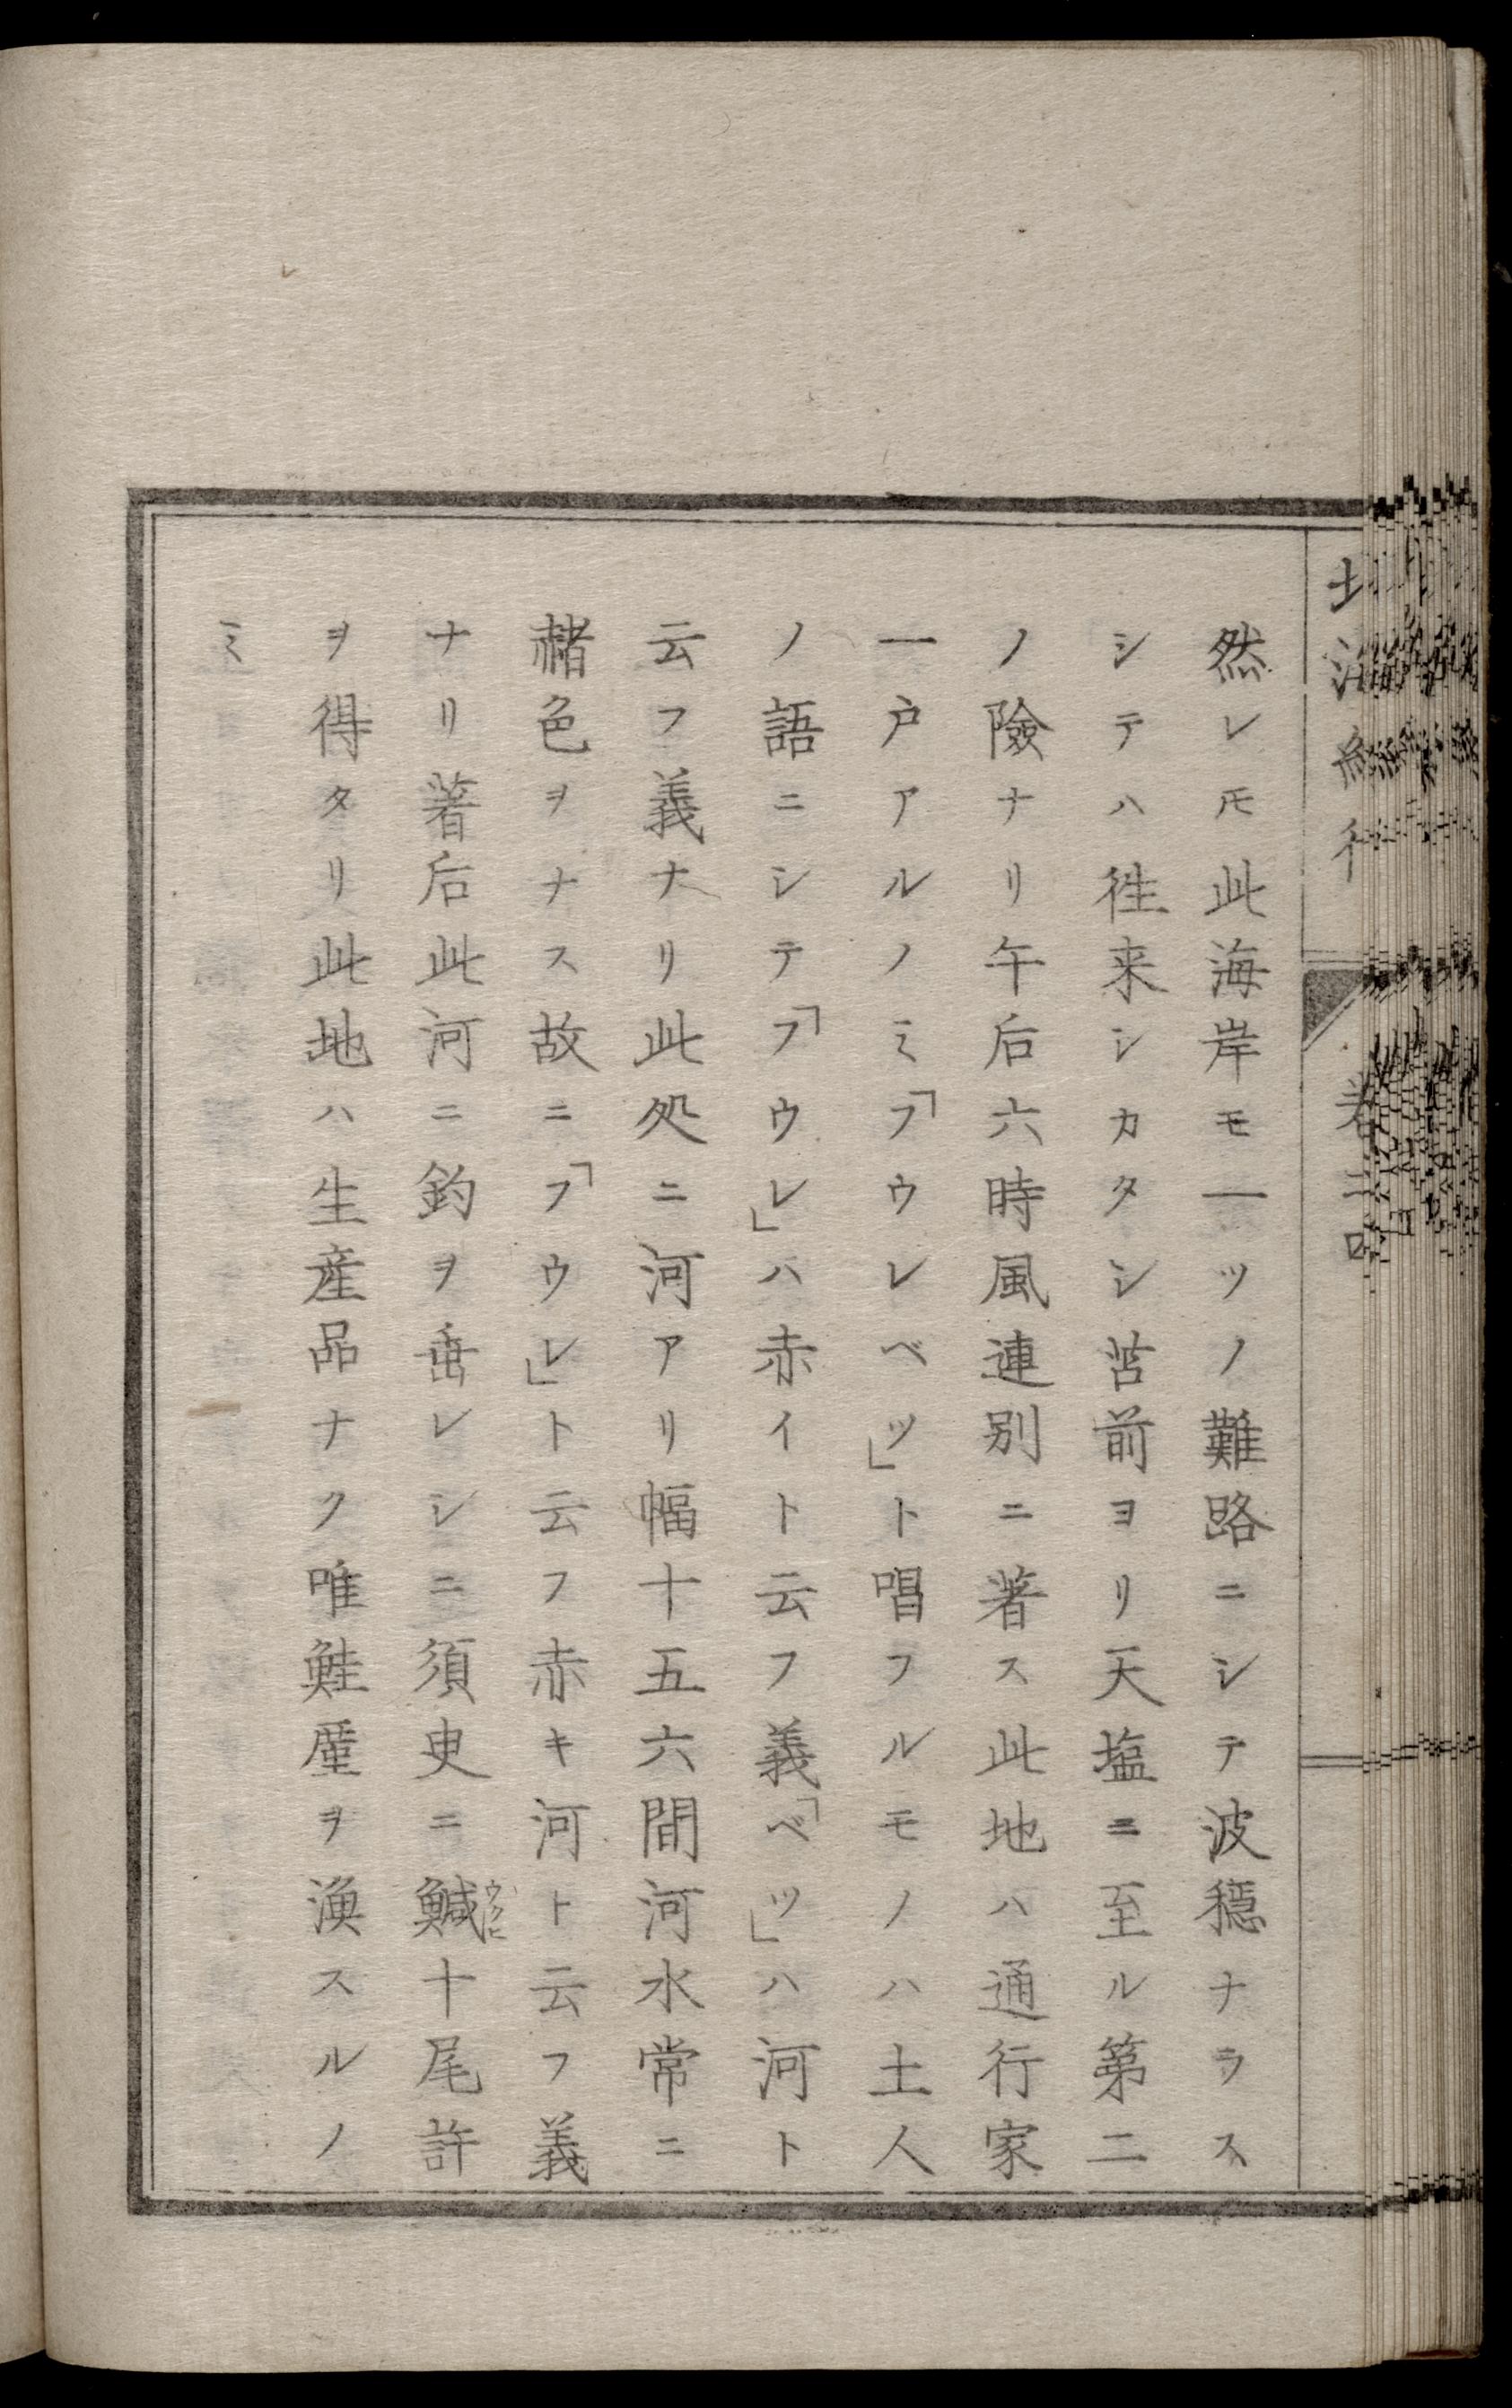 然レ𪜈此海岸モ一ツノ難路ニシテ波穏ナラス
シテハ徃来シカタシ苫前ヨリ天塩ニ至ル第二
ノ險ナリ午后六時風連別ニ著ス此地ハ通行家
一戸アルノミ「フウレベツ」ト唱フルモノハ土人
ノ語ニシテ「フウレ」ハ赤イト云フ義「ベツ」ハ河ト
云フ義ナリ此処ニ河アリ幅十五六間河水常ニ
赭色ヲナス故ニ「フウレ」ト云フ赤キ河ト云フ義
ナリ著后此河ニ釣ヲ垂レシニ須臾ニ鰔十尾許
ヲ得タリ此地ハ生産品ナク唯鮭鱒ヲ漁スルノ
ミ